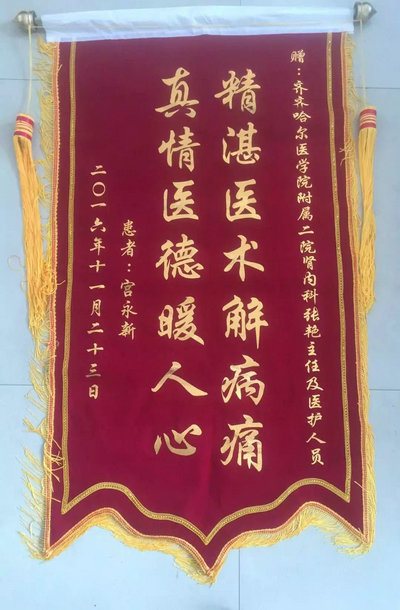 赠：齐齐哈尔医学院附属二院肾内科张艳主任及医护人员
精湛医术解病痛
真情医德暖人心
患者：宫永新
二〇一六年十一月二十三日